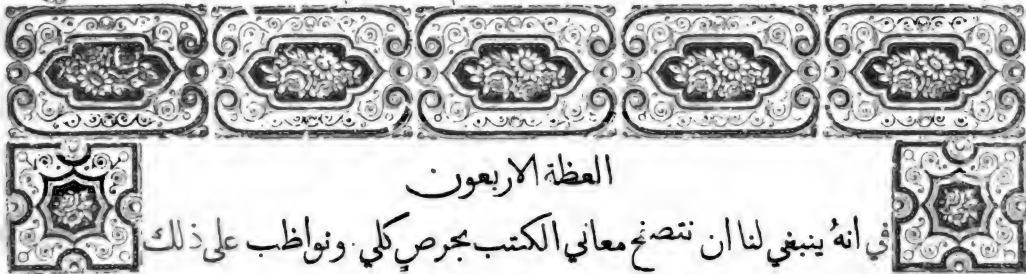 العظة الاربعون
في انهُ ينبغي لنا ان نتصفح معاني الكتب بحرصٍ كلي ونواظب على ذلك